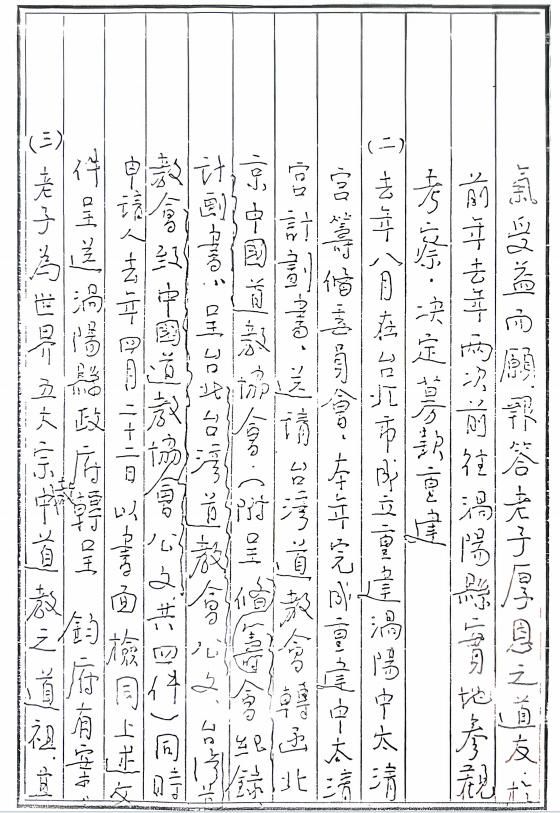 氣受益而願報答老子厚恩之道友，於
前年去年兩次前往渦陽縣實地參觀
考察，決定募款重建
(二)去年八月在台北市成立重建渦陽中太清
宮籌備委員會，本年完成重建中太清
宮計劃書，送請台灣道教會轉函北
京中國道教協會，(附呈備籌會紀錄，
計劃書，呈台北台灣道教會公文，台灣道
教會致中國道教協會公文，共四件)同時
申請人去年四月二十二日以書面檢同上述文
件呈送渦陽縣政府轉呈 鈞府有案，
(三)老子為世界五大宗教中道教之道祖，其